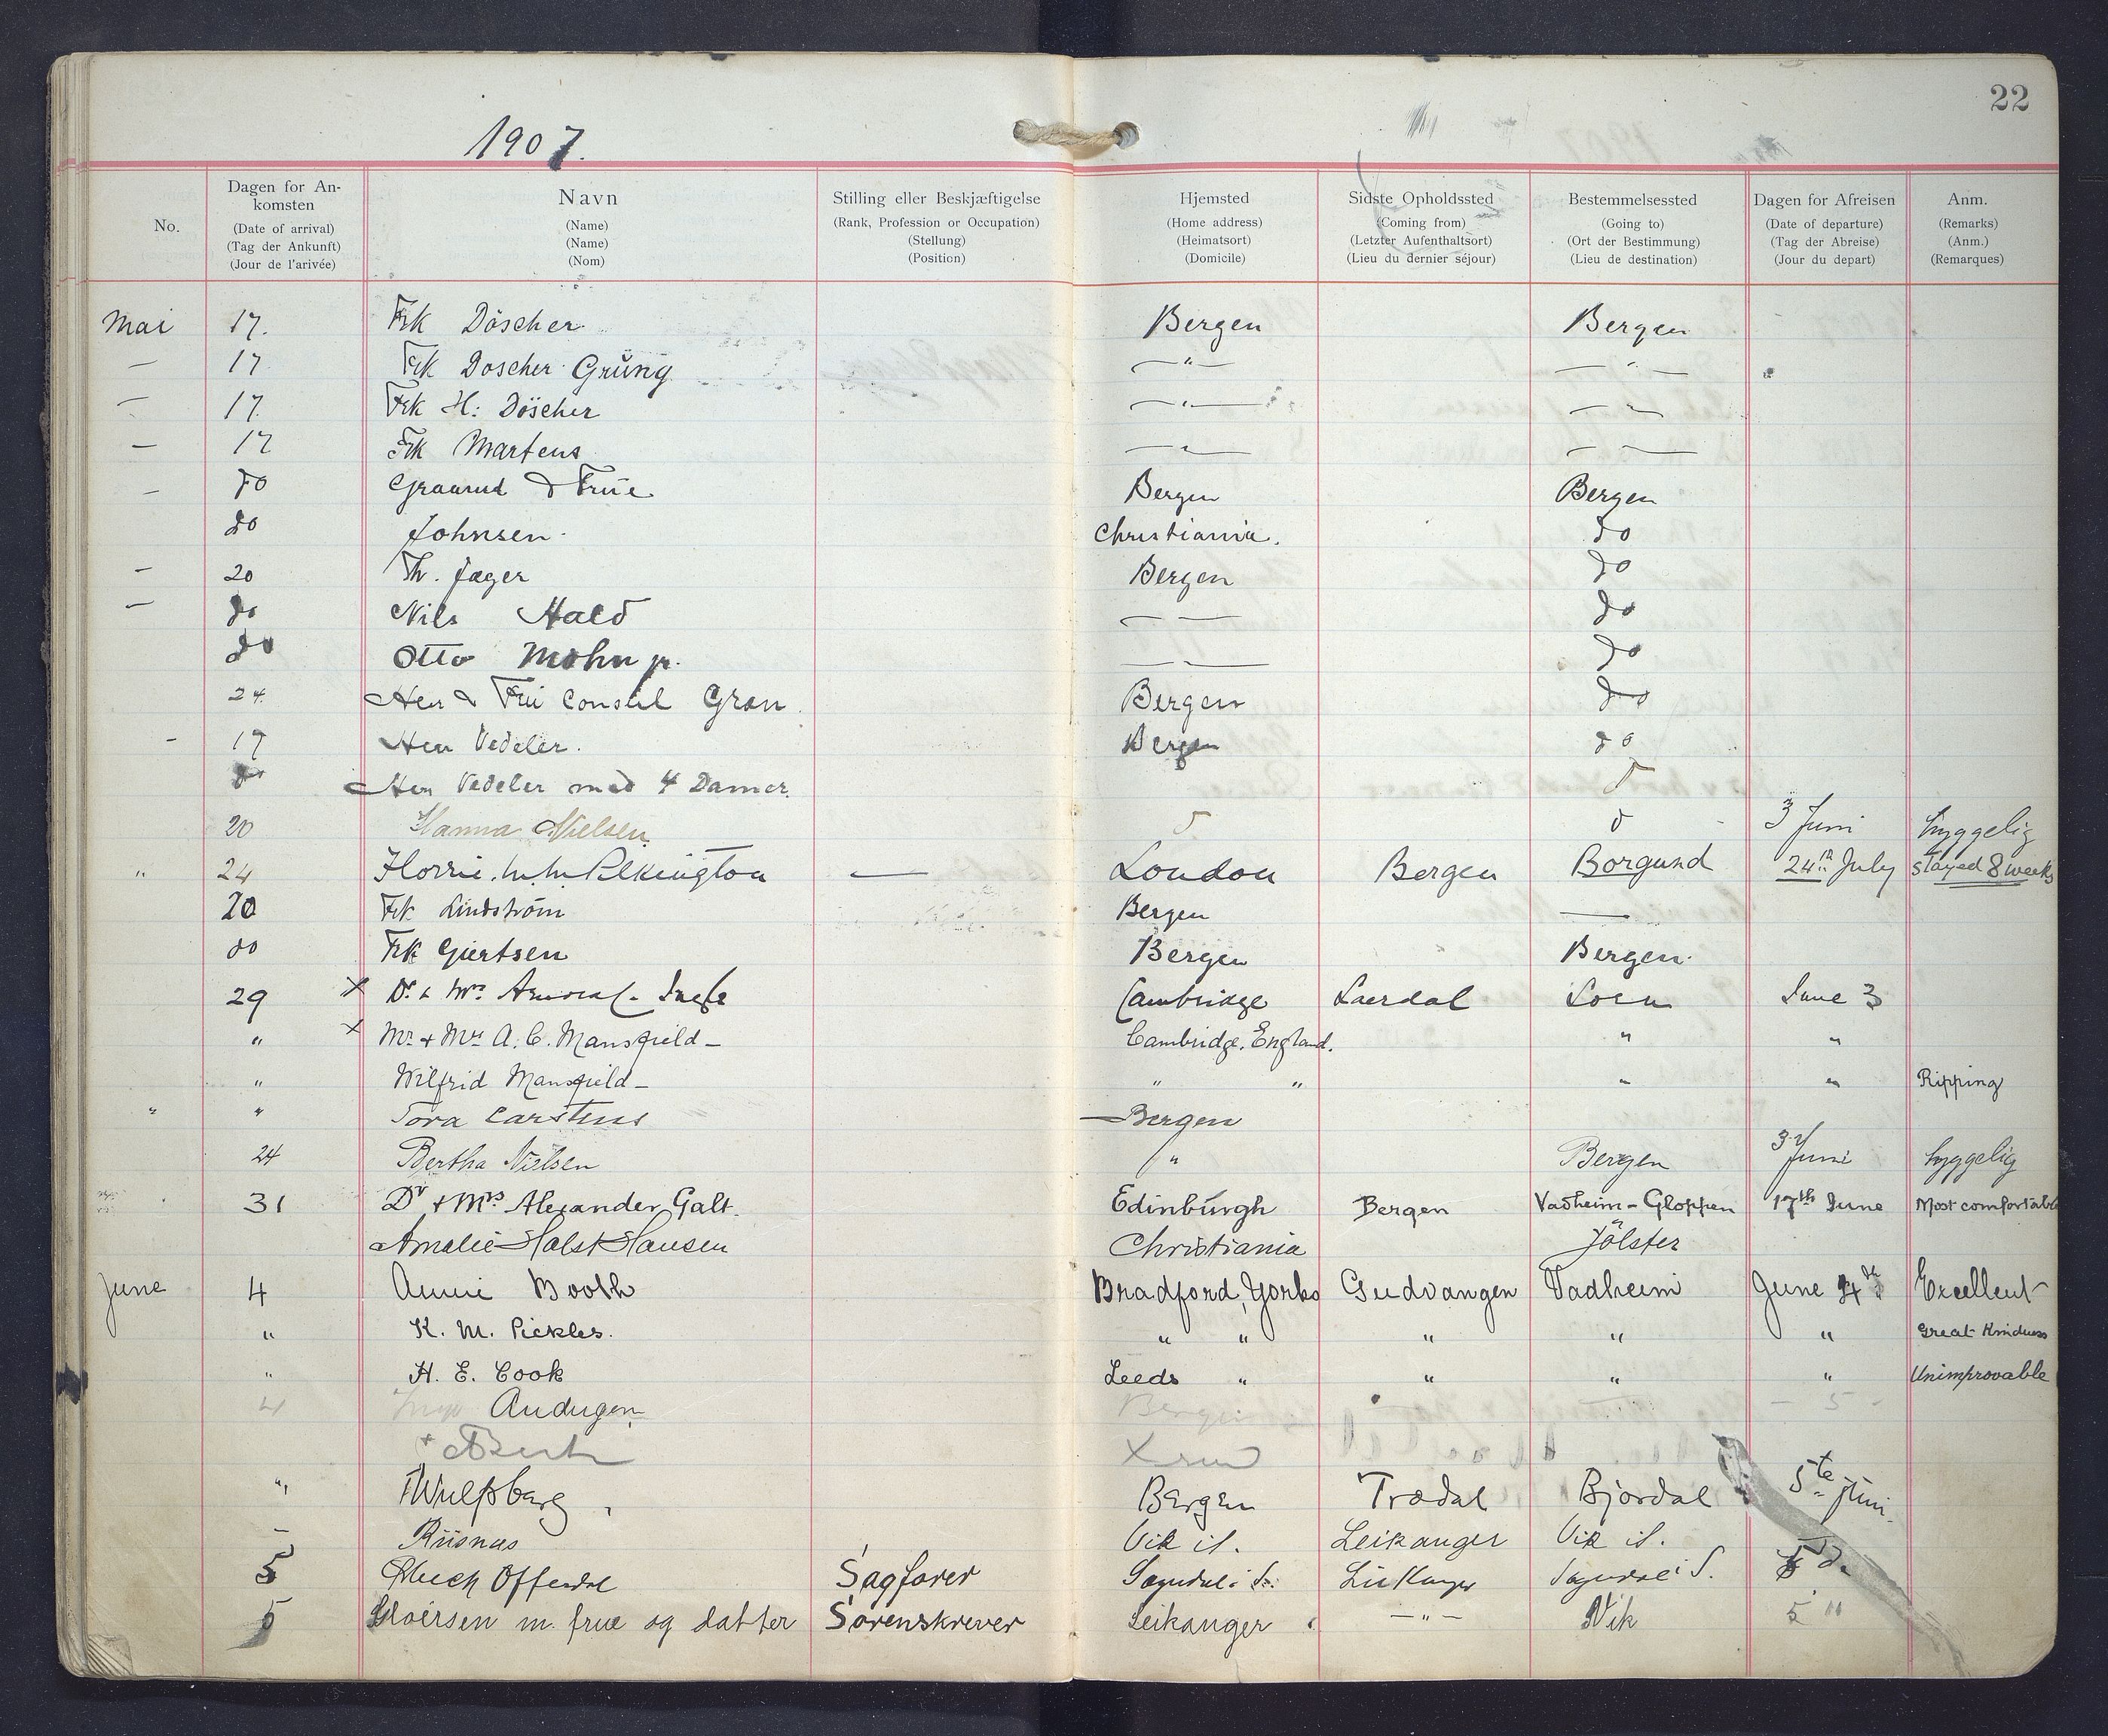 22
1907.
No.
Dagen for An-
komsten
(Date of arrival)
(Tag der Ankunft)
(Jour de l'arivée)
Navn
(Name)
(Name)
(Nom)
Stilling eller Beskjæftigelse
(Rank, Profession or Occupation)
(Stellung)
(Position)
Hjemsted
(Home address)
(Heimatsort)
(Domicile)
Sidste Opholdssted
(Coming from)
(Letzter Aufenthaltsort)
(Lieu du dernier séjour)
Bestemmelsessted
(Going to)
(Ort der Bestimmung)
(Lieu de destination)
Dagen for Afreisen
(Date of departure)
(Tag der Abreise)
(Jour du depart)
Anm.
(Remarks)
(Anm.)
(Remarques)
Mai 17. Frk Döscher Bergen Bergen
— 17 Frk Doscher Grüng — " — — " —
— 17. Frk H: Döscher — " — — " —
— 17 Frk Martens — " — — " —
— do Graarud & Frue Bergen Bergen
do Johnsen Christiania. do
— 20 Th. Jæger Bergen do
— do Nils Hald — — do
do Otto Mohn jr. — — do
24. Herr & Frü Consul Gran Bergen do
- 17 Herr Vedeler. Bergen do
do Herr Vedeler med 4 Damer.
20 Hanna Nielsen 3 Juni hyggelig
" 24 Florrie Pilkington — London Bergen Borgund 24th July stayed 8 weeks
20 Frk Lindström Bergen —
do Frk Giertsen Bergen Bergen.
29 x Dr. & Mrs Cambridge Laerdal Loen June 3
" x Mr. & Mrs A. C. Mansfield — Cambridge. England. " "
" Wilfrid Mansfield — " " " " Ripping
" " Tora Carstens Bergen
24 Bertha Nielsen " Bergen 3 Juni hyggelig
31 Dr & Mrs Alexander Galt. Edinburgh Bergen Vadheim - Gloppen 17th June Most comfortable
Amalie Holst Hansen Christiania Jölster
June 4 Annie Booth Bradford, Yorks Gudvangen Vadheim June 4th Excellent
" K. M. Pickles. " " " " " Great Kindness
" H. E. Cook Leeds " " " " Unimprovable
4 Bergen — 5 —
" Wulfsberg Bergen Trædal Bjordal 5te juni.
— Riisnæs Vik i S. Leikanger Vik i S.
5 Offerdal Sagfører Sogndal i S. Leikanger Sogndal i S. 5 d.
5 m. frue og datter Sorenskriver Leikanger — " — Vik 5 "